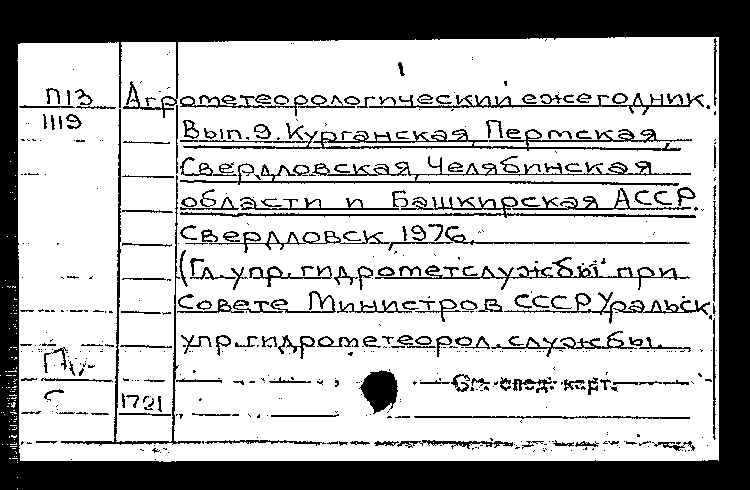 1
П13 Агрометеорологический ежегодник.
1119 Вып.9. Курганская, Пермская,
Свердловская, Челябинская
области и Башкирская АССР.
Свердловск, 1976.
(Гл. упр. гидрометслужбы при
Совете Министров СССР. Уральск.
упр. гидрометеорол. службы.
См. след. карт.
С 1721